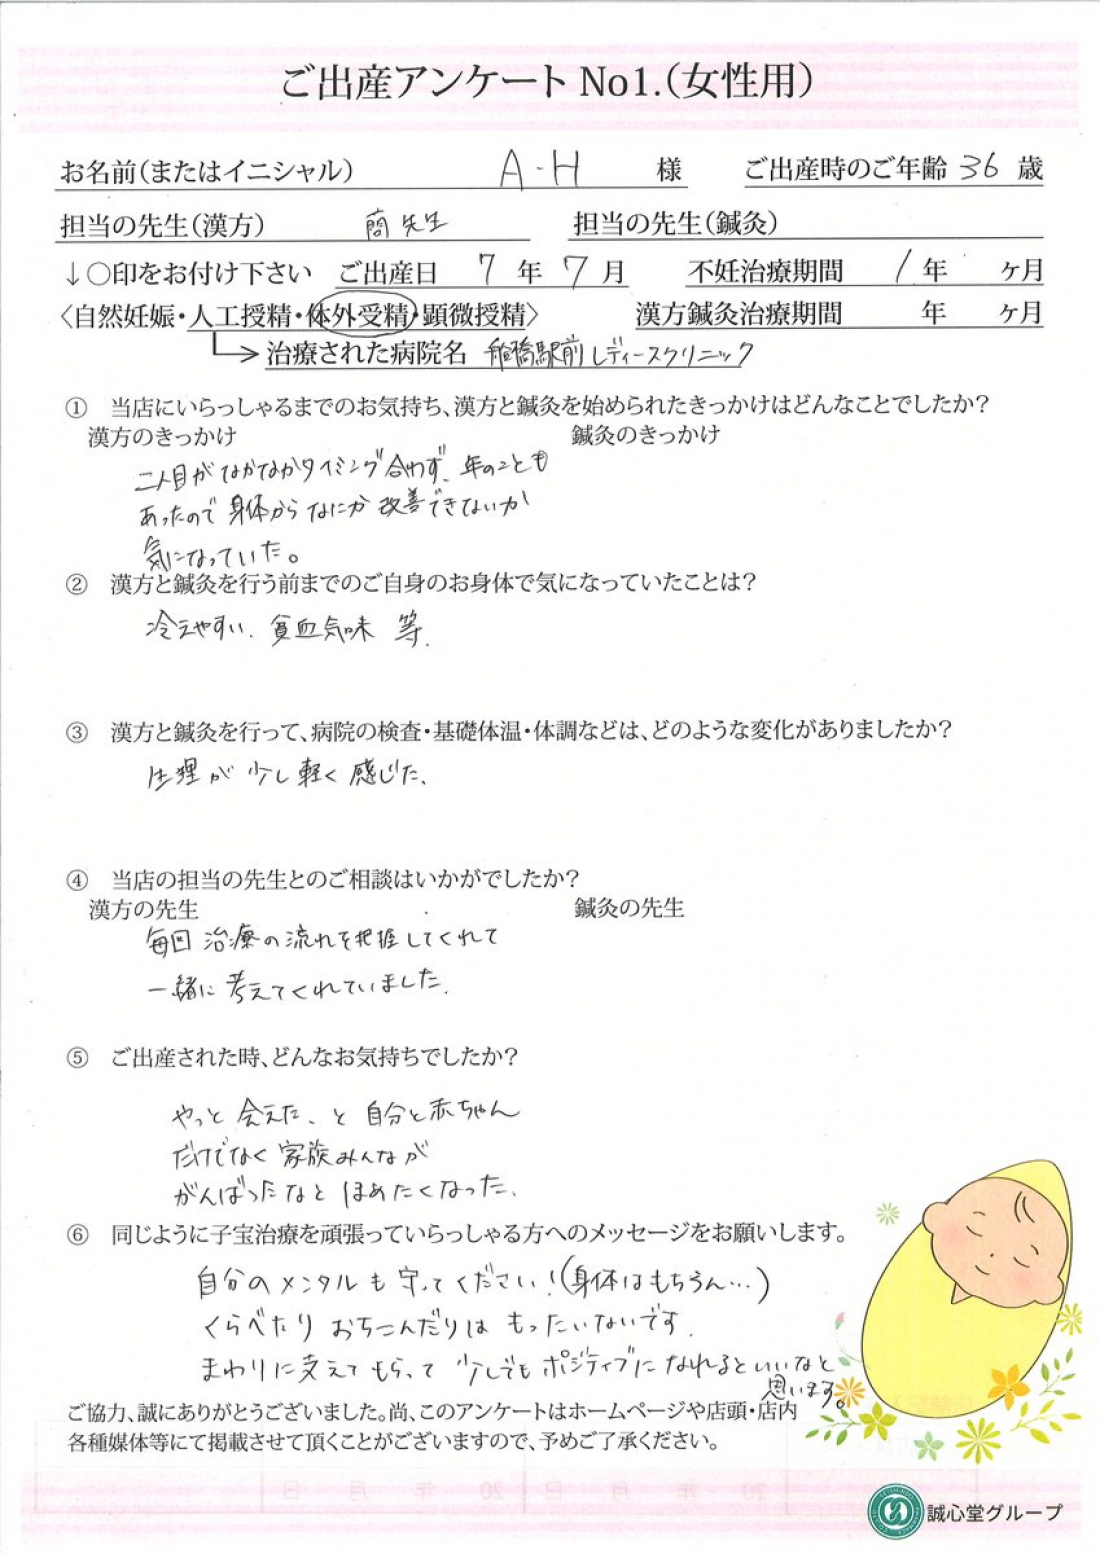 ご出産アンケート No1.(女性用)
お名前(またはイニシャル) A-H 様 ご出産時のご年齢 36 歳
担当の先生(漢方) 簡先生 担当の先生(鍼灸)
↓○印をお付け下さい ご出産日 7 年 7 月 不妊治療期間 1 年 ヶ月
〈自然妊娠・人工授精・体外受精・顕微授精〉 漢方鍼灸治療期間 年 ヶ月
治療された病院名 船橋駅前レディースクリニック
① 当店にいらっしゃるまでのお気持ち、漢方と鍼灸を始められたきっかけはどんなことでしたか?
漢方のきっかけ 鍼灸のきっかけ
二人目がなかなかタイミング合わず、年のことも
あったので身体からなにか改善できないか
気になっていた。
② 漢方と鍼灸を行う前までのご自身のお身体で気になっていたことは?
冷えやすい、貧血気味 等.
③ 漢方と鍼灸を行って、病院の検査・基礎体温・体調などは、どのような変化がありましたか?
生理が少し軽く感じた、
④ 当店の担当の先生とのご相談はいかがでしたか?
漢方の先生 鍼灸の先生
毎回 治療の流れを把握してくれて
一緒に考えてくれていました.
⑤ ご出産された時、どんなお気持ちでしたか?
やっと会えた、と 自分と赤ちゃん
だけでなく家族みんなが
がんばったなと ほめたくなった.
⑥ 同じように子宝治療を頑張っていらっしゃる方へのメッセージをお願いします。
自分のメンタルも守ってください!(身体はもちろん…)
くらべたり おちこんだりは もったいないです.
まわりに支えてもらって 少しでもポジティブになれるといいなと
思います。
ご協力、誠にありがとうございました。尚、このアンケートはホームページや店頭・店内
各種媒体等にて掲載させて頂くことがございますので、予めご了承ください。
誠心堂グループ